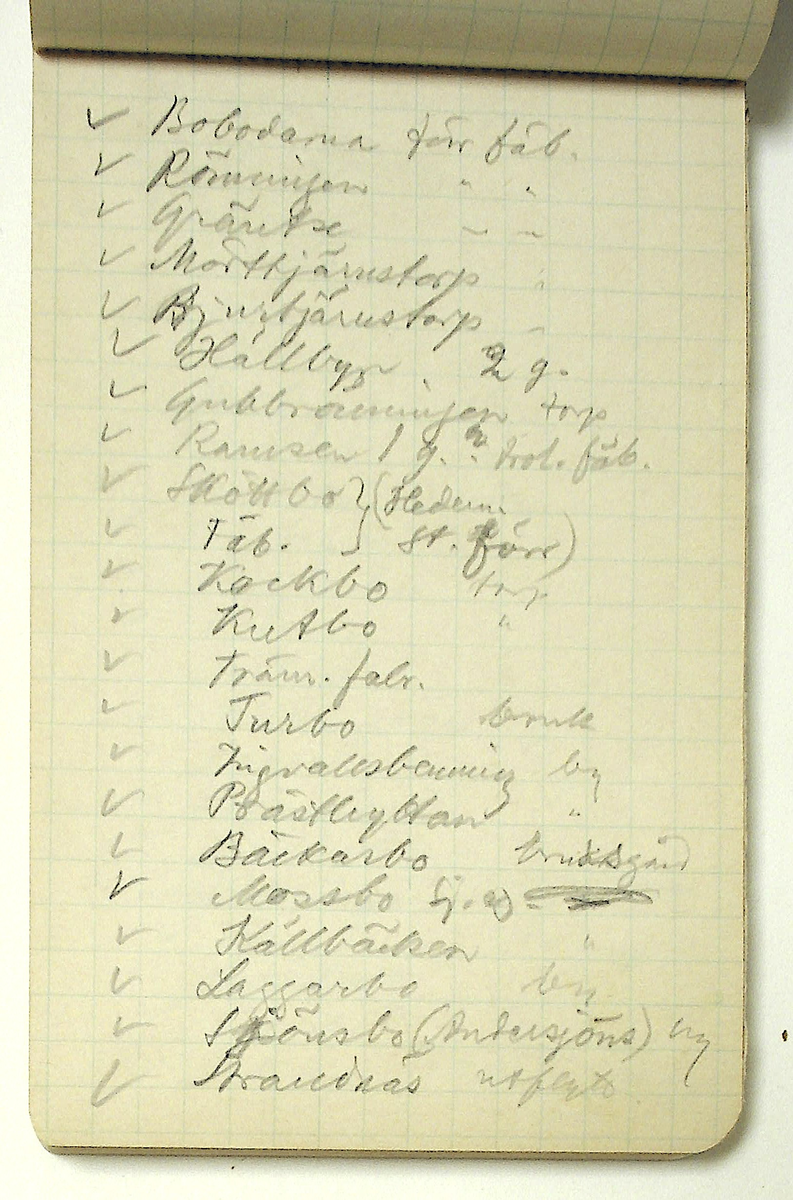 ✓ Bobodarna förr fäb.
✓ Rönningen " "
✓ Gräntse " "
✓ Mörttjärnstorp "
✓ Bjurtjärnstorp "
✓ Hällbyn 2 g.
✓ Gubbrönningen torp
✓ Ramsen 1 g. trol. fäb.
✓ Sköttbo } (Hedem.
✓ Fäb. } St. förr)
✓ Kockbo torp
✓ Kutbo "
✓ Träm. fabr.
✓ Turbo bruk
✓ Ingvallsbenning by
✓ Prästhyttan "
✓ Bäckarbo bruksgård
✓ Mossbo
✓ Källbäcken "
✓ Laggarbo by
✓ Sjönsbo (Andersjöns) by
✓ Strandnäs utflytt